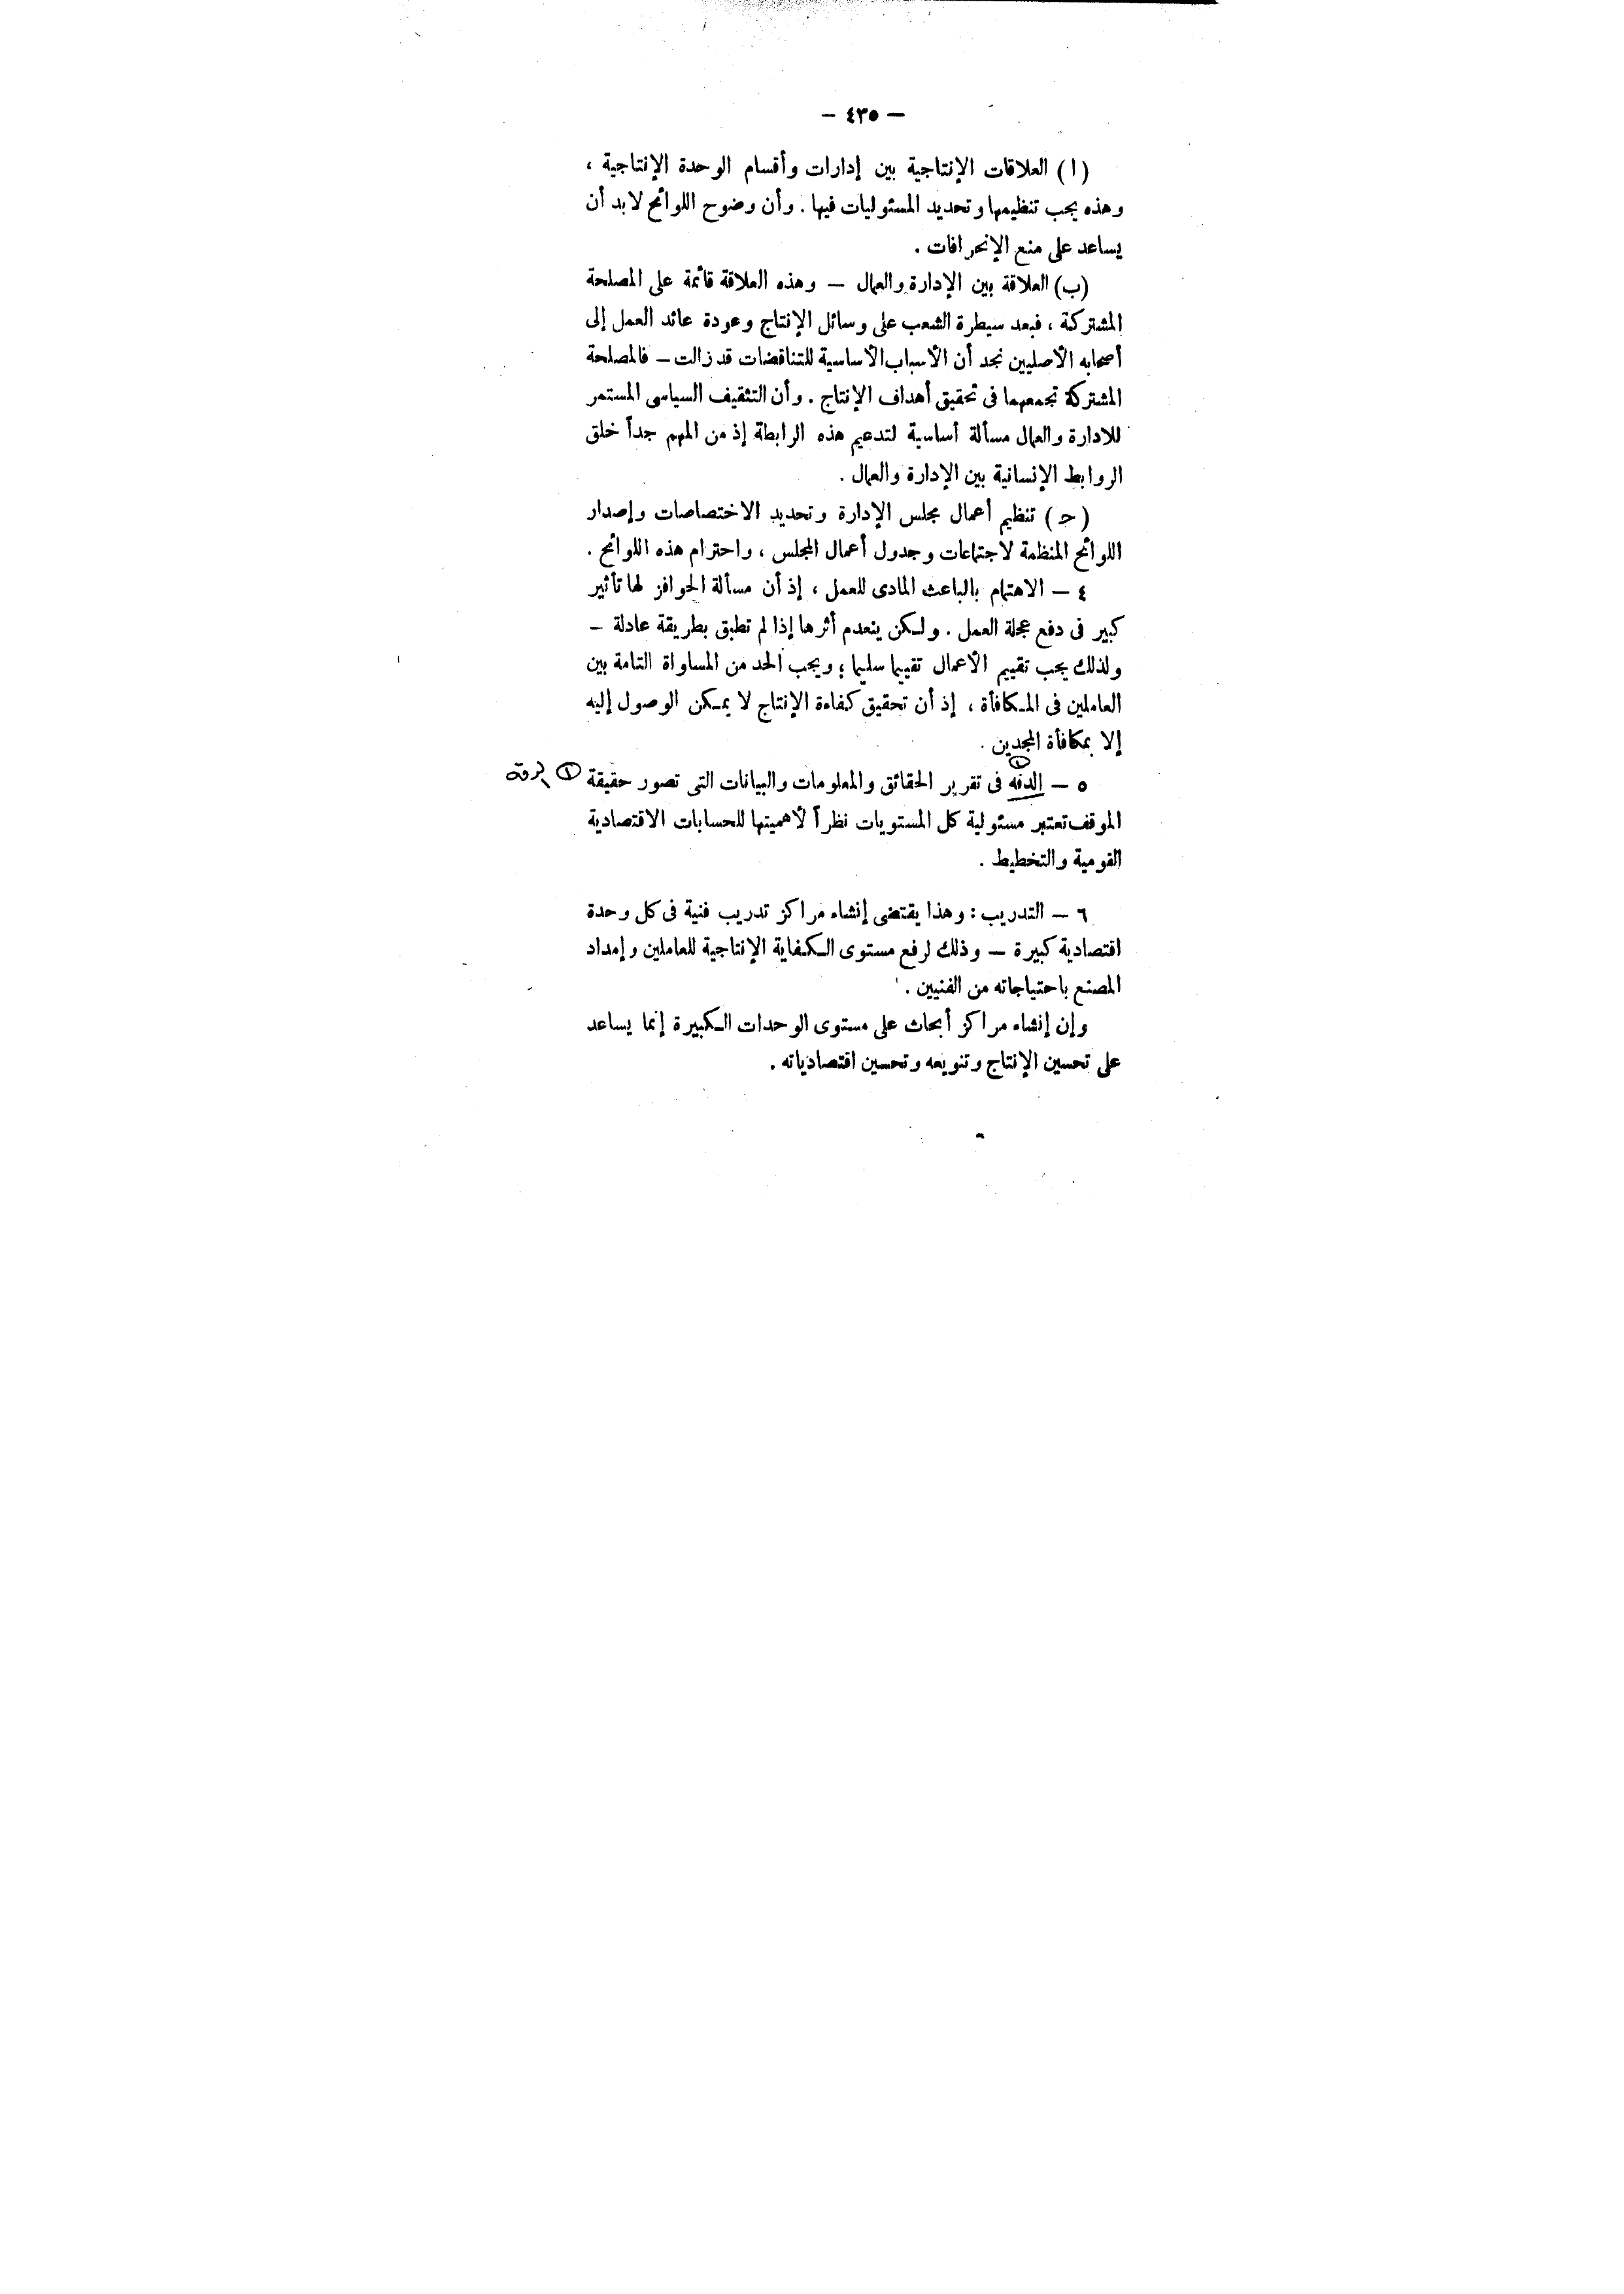 — ٤٣٥ —
(ا) العلاقات الإنتاجية بين إدارات وأقسام الوحدة الإنتاجية ،
وهذه يجب تنظيمها وتحديد المسئوليات فيها . وأن وضوح اللوائح لابد أن
يساعد على منع الإنحرافات .
(ب) العلاقة بين الإدارة والعمال — وهذه العلاقة قائمة على المصلحة
المشتركة ، فبعد سيطرة الشعب على وسائل الإنتاج وعودة عائد العمل إلى
أصحابه الأصليين نجد أن الأسباب الأساسية للتناقضات قد زالت — فالمصلحة
المشتركة تجمعهما فى تحقيق أهداف الإنتاج . وأن التثقيف السياسى المستمر
للادارة والعمال مسألة أساسية لتدعيم هذه الرابطة إذ من المهم جداً خلق
الروابط الإنسانية بين الإدارة والعمال .
(ح) تنظيم أعمال مجلس الإدارة وتحديد الاختصاصات وإصدار
اللوائح المنظمة لاجتماعات وجدول أعمال المجلس ، واحترام هذه اللوائح .
٤ — الاهتمام بالباعث المادى للعمل ، إذ أن مسألة الحوافز لها تأثير
كبير فى دفع عجلة العمل . ولكن ينعدم أثرها إذا لم تطبق بطريقة عادلة —
ولذلك يجب تقييم الأعمال تقييما سليما ؛ ويجب الحد من المساواة التامة بين
العاملين فى المكافأة ، إذ أن تحقيق كفاءة الإنتاج لا يمكن الوصول إليه
إلا بمكافأة المجدين .
٥ — الدقه فى تقرير الحقائق والمعلومات والبيانات التى تصور حقيقة ① الدقة
الموقف تعتبر مسئولية كل المستويات نظراً لأهميتها للحسابات الاقتصادية
القومية والتخطيط .
٦ — التدريب : وهذا يقتضى إنشاء مراكز تدريب فنية فى كل وحدة
اقتصادية كبيرة — وذلك لرفع مستوى الكفاية الإنتاجية للعاملين وإمداد
المصنع باحتياجاته من الفنيين .
وإن إنشاء مراكز أبحاث على مستوى الوحدات الكبيرة إنما يساعد
على تحسين الإنتاج وتنويعه وتحسين اقتصادياته .